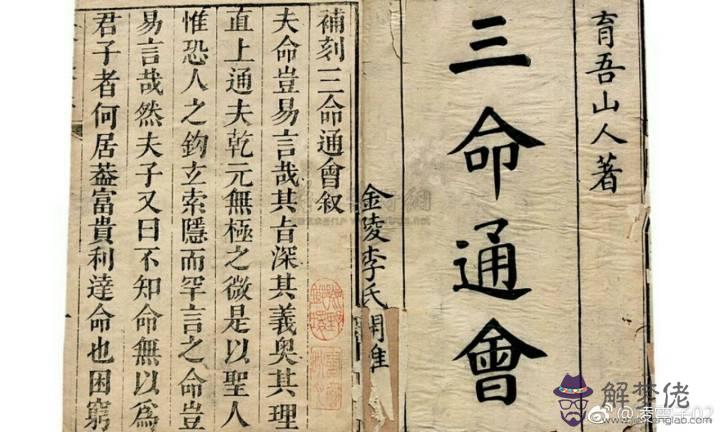 育吾山人著
三命通會
金陵李氏
補刻三命通會叙
夫命豈易言哉其㫖深其義奧其理
直上通夫乾元無極之微是以聖人
惟恐人之鈎玄索隱而罕言之命豈
易言哉然夫子又曰不知命無以為
君子者何居葢富貴利達命也困窮
解梦佬
jiemenglao.com